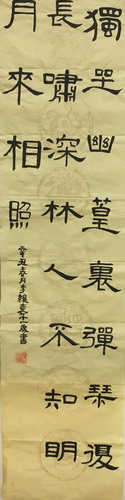 獨坐幽篁裏彈琴復
長嘯深林人不知明
月來相照
辛丑春月李